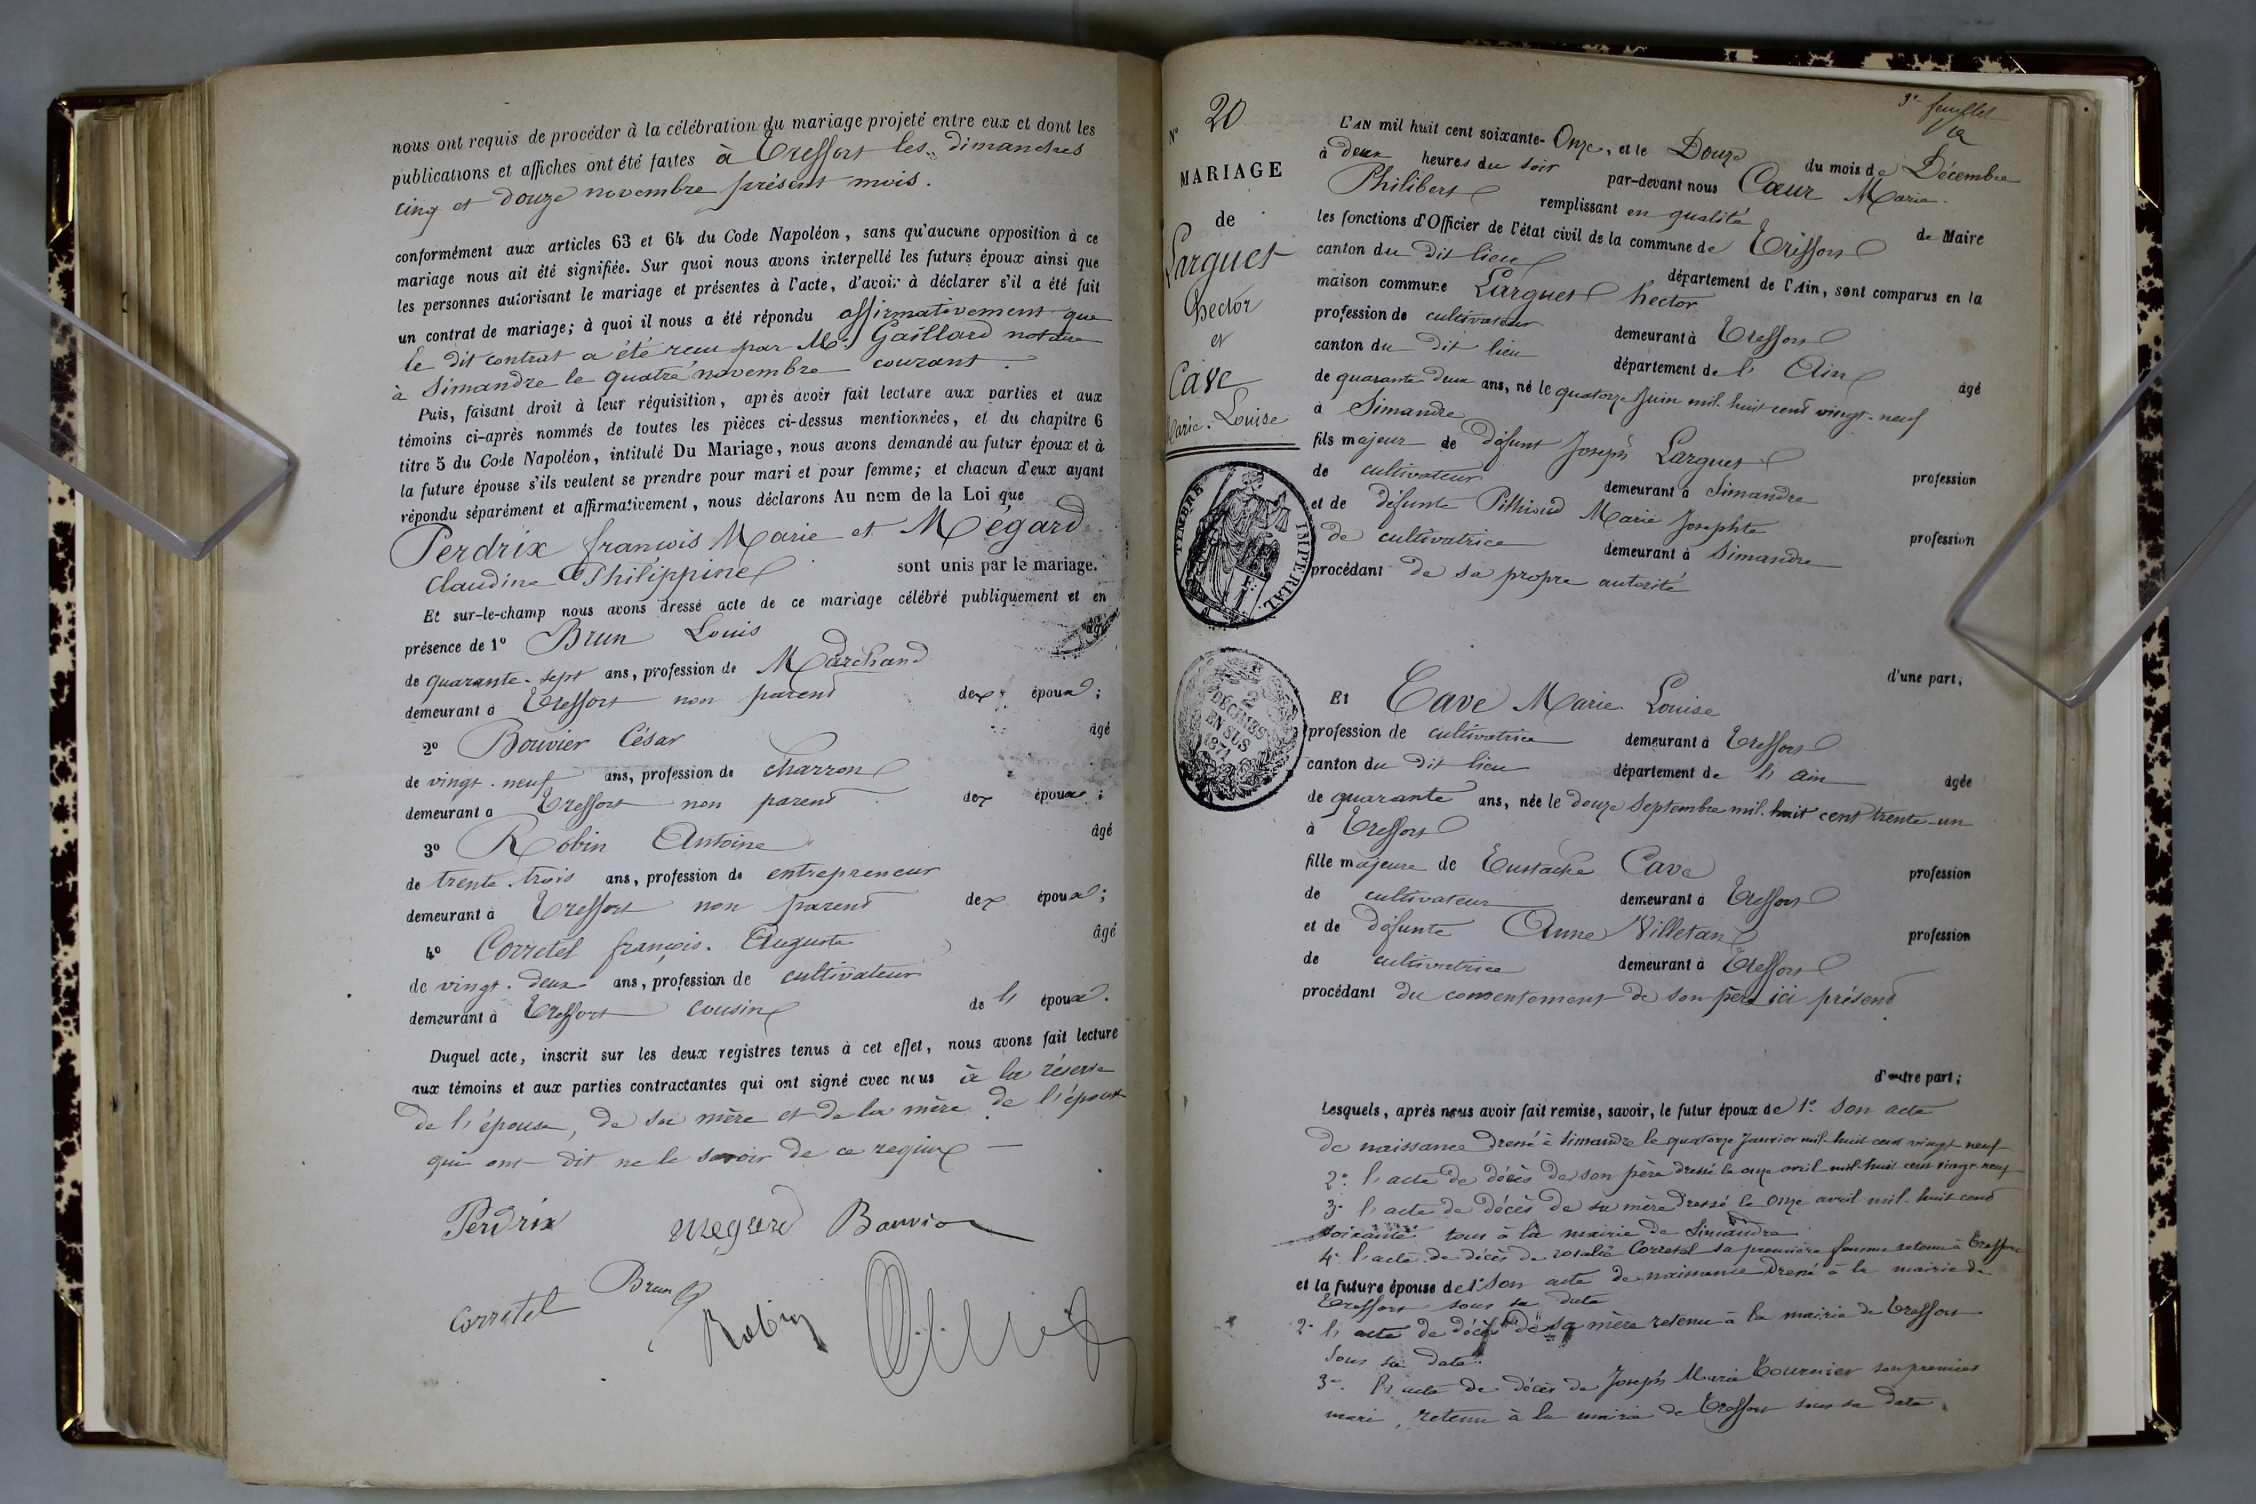 nous ont requis de procéder à la célébration du mariage projeté entre eux et dont les
publications et affiches ont été faites à Treffort les dimanches
cinq et douze novembre présent mois.
conformément aux articles 63 et 64 du Code Napoléon, sans qu'aucune opposition à ce
mariage nous ait été signifiée. Sur quoi nous avons interpellé les futurs époux ainsi que
les personnes autorisant le mariage et présentes à l'acte, d'avoir à déclarer s'il a été fait
un contrat de mariage; à quoi il nous a été répondu affirmativement que
le dit contrat a été reçu par Me Gaillard notaire
à Simandre le quatre novembre courant.
Puis, faisant droit à leur réquisition, après avoir fait lecture aux parties et aux
témoins ci-après nommés de toutes les pièces ci-dessus mentionnées, et du chapitre 6
titre 5 du Code Napoléon, intitulé Du Mariage, nous avons demandé au futur époux et à
la future épouse s'ils veulent se prendre pour mari et pour femme; et chacun d'eux ayant
répondu séparément et affirmativement, nous déclarons Au nom de la Loi que
Perdrix françois Marie et Mégard
Claudine Philippine sont unis par le mariage.
Et sur-le-champ nous avons dressé acte de ce mariage célébré publiquement et en
présence de 1º Brun Louis âgé
de quarante-sept ans, profession de Marchand
demeurant à Treffort non parent des époux;
2º Bouvier César âgé
de vingt-neuf ans, profession de charron
demeurant à Treffort non parent des époux;
3º Robin Antoine âgé
de trente-trois ans, profession de entrepreneur
demeurant à Treffort non parent des époux;
4º Corretel françois-Auguste âgé
de vingt-deux ans, profession de cultivateur
demeurant à Treffort cousin de l'époux.
Duquel acte, inscrit sur les deux registres tenus à cet effet, nous avons fait lecture
aux témoins et aux parties contractantes qui ont signé avec nous à la réserve
de l'épouse, de sa mère et de la mère de l'époux
qui ont dit ne le savoir de ce requis
Perdrix Megard Bouvier
Corretel Brun
Robin
3e feuillet
Nº 20
MARIAGE
de
Larguet
hector
et
Cave
Marie-Louise
TIMBRE IMPÉRIAL
2 DÉCIMES
EN SUS
1871
L'AN mil huit cent soixante-Onze, et le Douze du mois de Décembre
à deux heures du soir par-devant nous Cœur Marie
Philibert remplissant en qualité de Maire
les fonctions d'Officier de l'état civil de la commune de Treffort
canton du dit lieu département de l'Ain, sont comparus en la
maison commune Larguet hector
profession de cultivateur demeurant à Treffort
canton du dit lieu département de l'Ain âgé
de quarante deux ans, né le quatorze Juin mil-huit cent vingt-neuf
à Simandre
fils majeur de défunt Joseph Larguet profession
de cultivateur demeurant à Simandre
et de défunte Pithioud Marie Josephte profession
de cultivatrice demeurant à Simandre
procédant de sa propre autorité
d'une part;
Et Cave Marie-Louise
profession de cultivatrice demeurant à Treffort
canton du dit lieu département de l'ain âgée
de quarante ans, née le douze Septembre mil-huit cent trente-un
à Treffort
fille majeure de Eustache Cave profession
de cultivateur demeurant à Treffort
et de défunte Anne Villetan profession
de cultivatrice demeurant à Treffort
procédant du consentement de son père ici présent
d'autre part;
Lesquels, après nous avoir fait remise, savoir, le futur époux de 1º Son acte
de naissance dressé à Simandre le quatorze Janvier mil-huit cent vingt neuf
2º l'acte de décès de son père dressé le onze avril mil-huit cent vingt-neuf
3º l'acte de décès de sa mère dressé le Onze avril mil-huit cent
soixante tous à la mairie de Simandre
4º l'acte de décès de rosalie Corretel sa première femme retenu à Treffort
et la future épouse de 1º Son acte de naissance dressé à la mairie de
Treffort sous sa date
2º l'acte de décès de sa mère retenu à la mairie de Treffort
sous sa date.
3º l'acte de décès de Joseph Marie Tournier son premier
mari, retenu à la mairie de Treffort sous sa date.